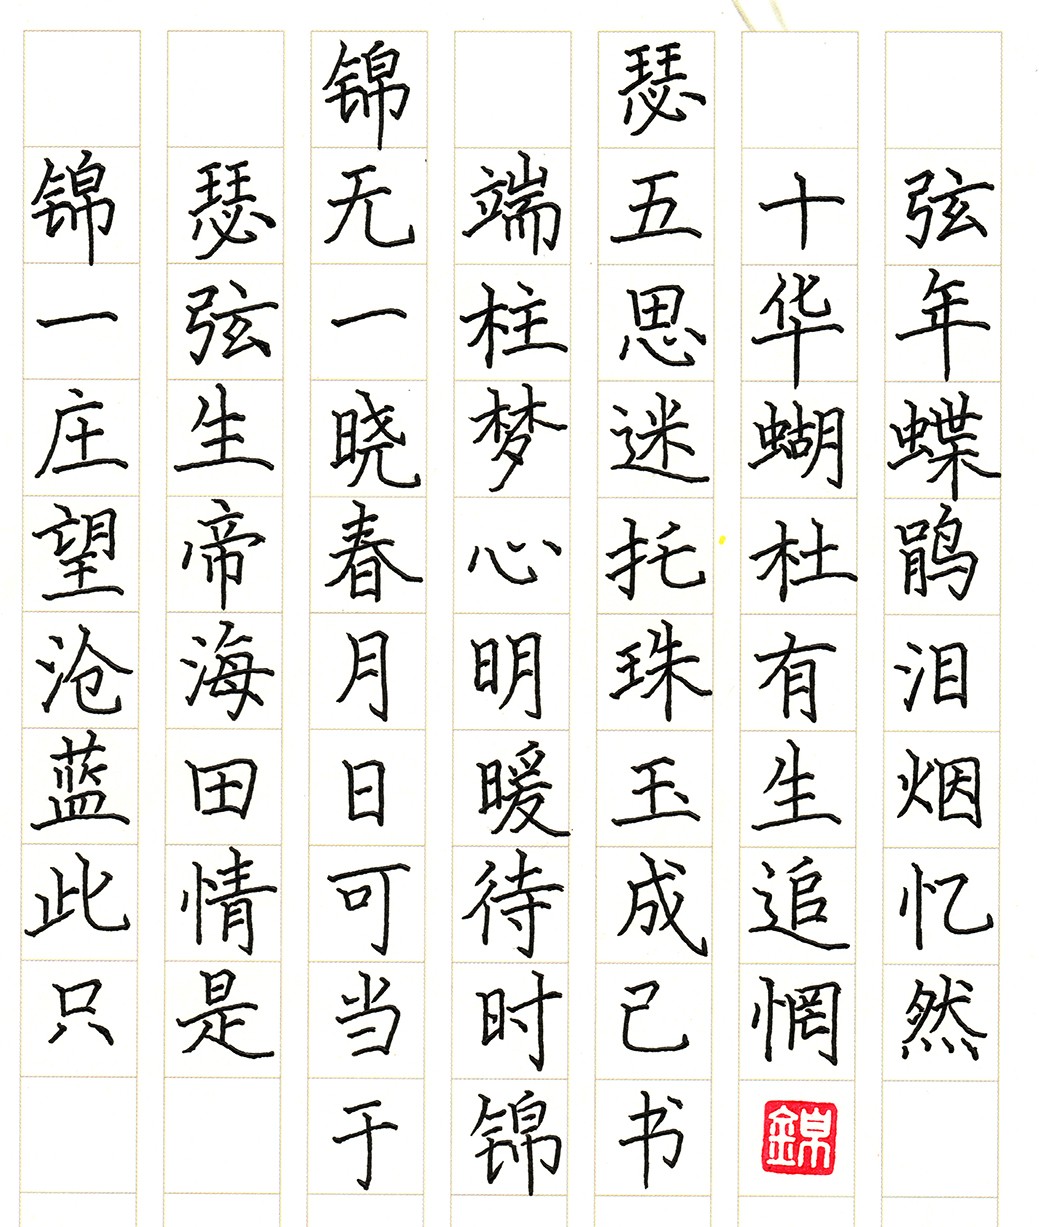 锦瑟
锦瑟无端五十弦
一弦一柱思华年
庄生晓梦迷蝴蝶
望帝春心托杜鹃
沧海月明珠有泪
蓝田日暖玉生烟
此情可待成追忆
只是当时已惘然
于锦书
錦